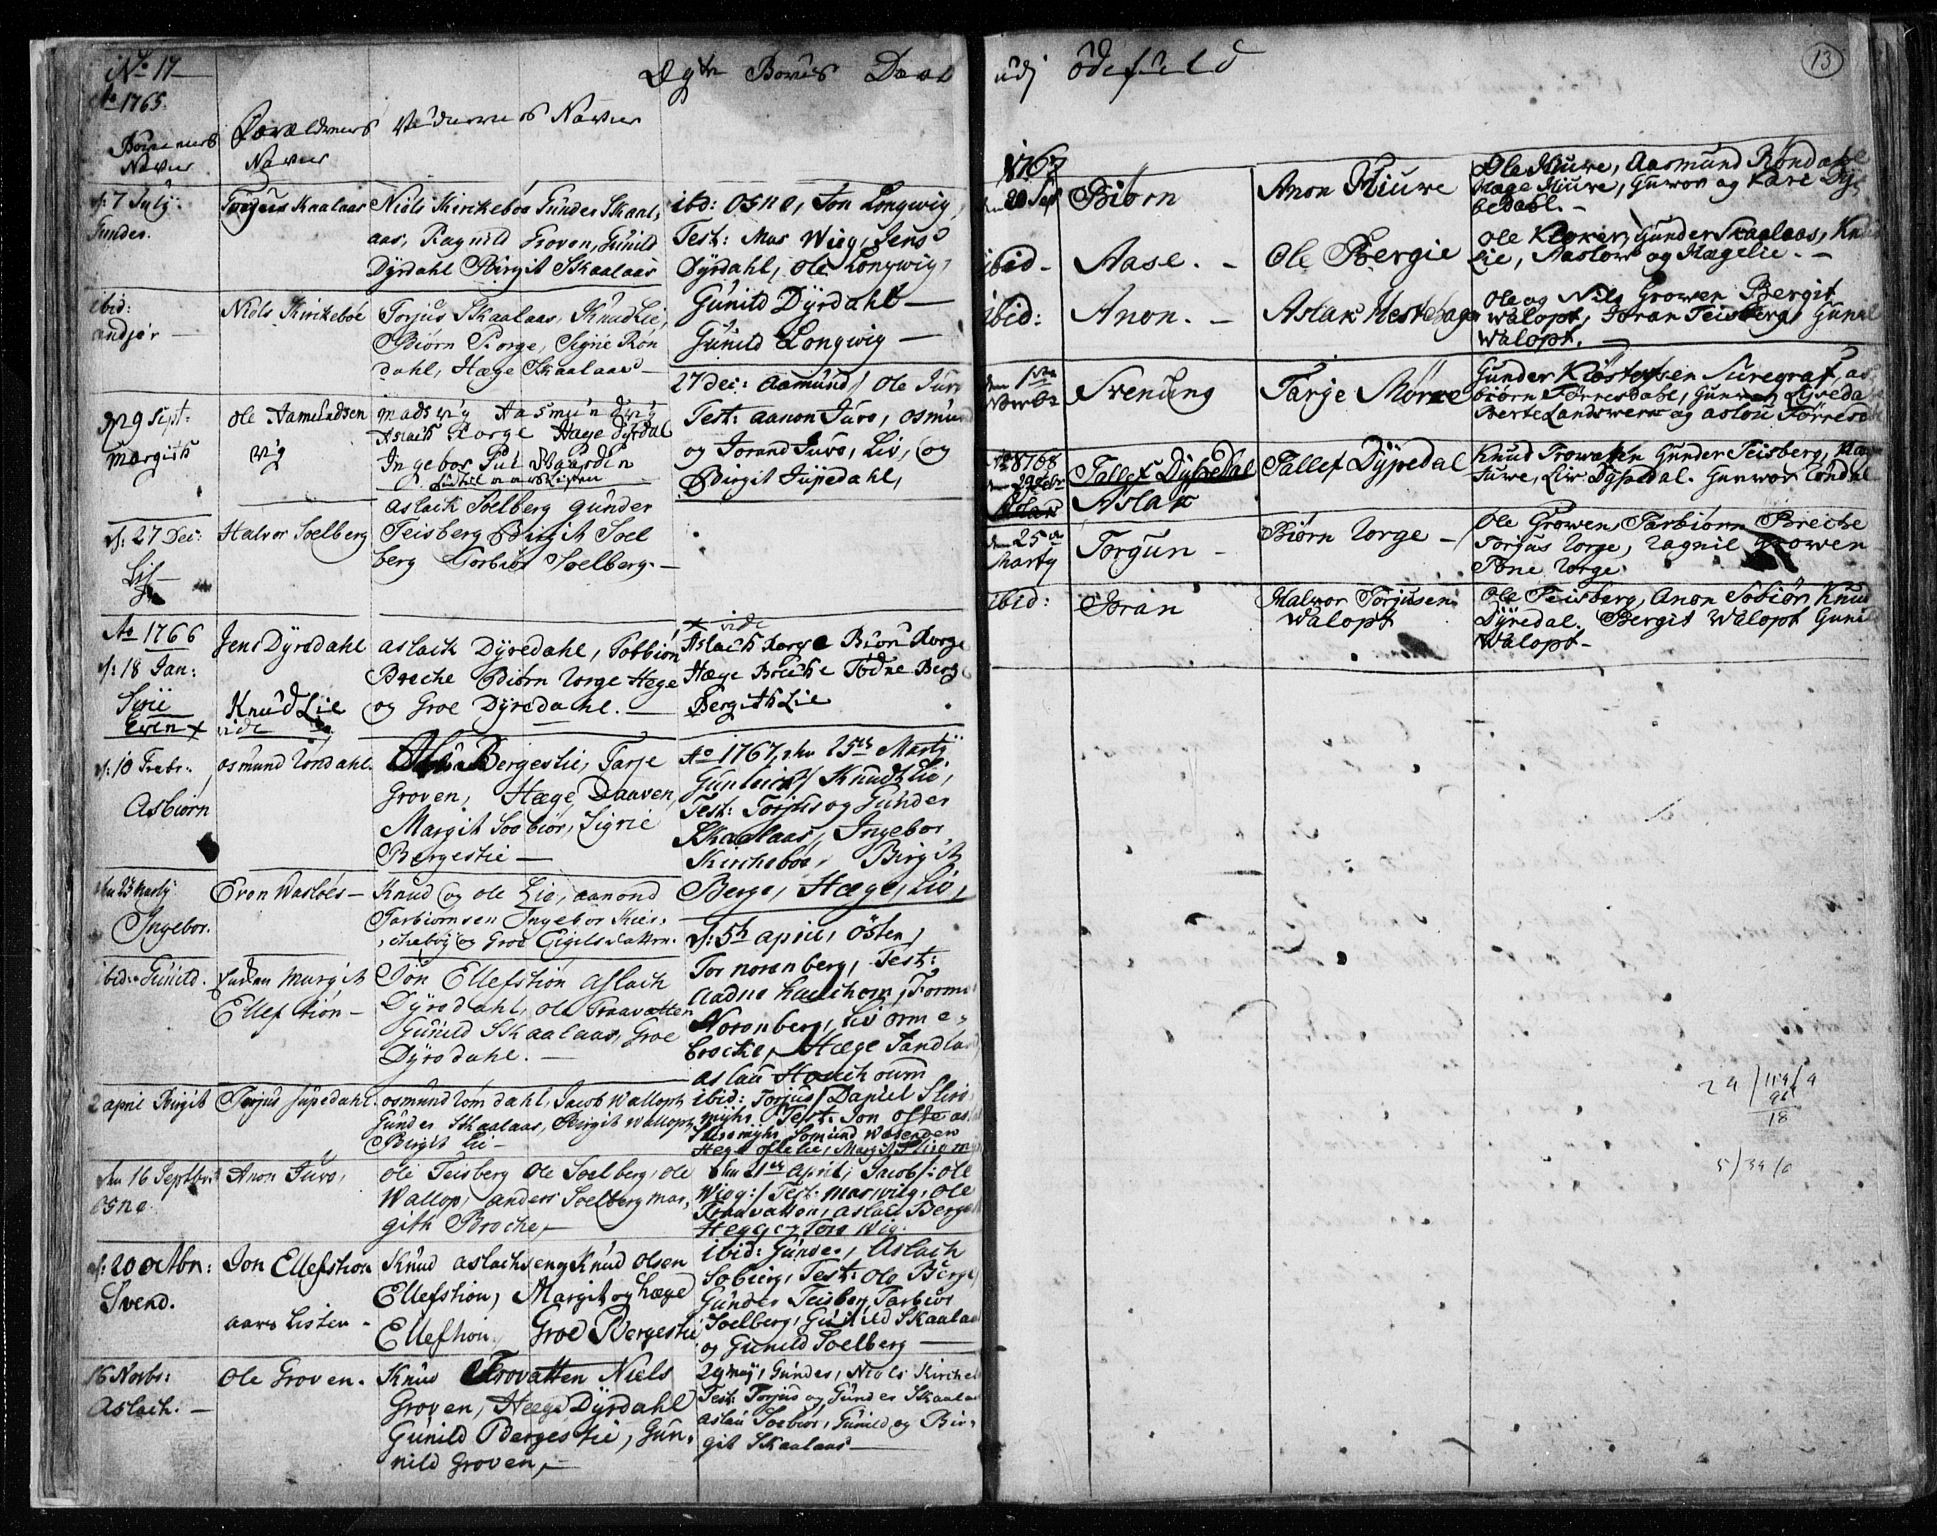 No 17
Ao 1765.
Ægte Børns Daab
Børnenes Navne
Forældrenes Navne
Faddernes Navne
d: 7 July:
Gunder.
Torjus Skaalaas
Niels Kirkeboe Gunder Skaal,
aas, Ragnild Groven, Gunild
Dyrdahl Birgit Skaalaas
ibid:
andjer
Niels Kirkeboe
Torjus Skaalaas, Knud Lie,
Biørn Rorge, Signe Ron
dahl, Hæge Skaalaas
29 Sept:
margith
ole Aamundsen
wig
mads wig Aasmun wig
Aslack Rorge Hæge dyrdal
Ingebor
d: 27 Dec:
Halvor Soelberg
aslack Soelberg gunder
Teisberg Birgit Soel
berg Torbiør Soelberg.
Ao 1766
d: 18 Jan:
Sirie
Even x
Jens Dyredahl
Knud Lie
vide
aslack Dyredahl, Tobbiørn
Breche Biørn Rorge Hæge
og Groe Dyredahl.
d: 10 Febr:
Asbiørn
osmund Rondahl.
Bergestie, Tarje
Groven, Hæge Daaven,
Margit Soebiør, Sigrie
Bergestie
den 25 Marty
Ingebor.
Even Wasboes
Knud og ole Lie, aanond
Tarbiørnsen Ingebor Kir,
cheboe og Groe Eigilsdatter.
ibid: Gunild.
Margit
Ellefstion
Jon Ellefstion aslach
Dyredahl, ole Traavatten
Gunild Skaalaas, Groe
Dyredahl.
2 april Birgit
Torjus Jupedahl.
osmund Romdahl, Jacob Wallopt,
Gunder Skaalaas, Birgit Wallopt,
Birgit Lie
den 16 Septbr:
osne
Anon Juve,
ole Teisberg ole Soelberg, ole
Wallop, anders Soelberg mar,
gith Broche,
d: 20 octbr:
Svend.
Jon Ellefstion
Knud aslachseng Knud olsen
Ellefstion, Margit og hæge
Ellefstion, Groe Bergestie
16 Novbr:
Aslach.
ole Groven.
Knud Trovatten Niels
Groven, Hæge Dyrdahl
Gunild Bergestie, Gun,
nild Groven,
ibd: osne, Jon Longwig,
Test: Mas Wiig, Jens
Dyrdahl, ole Longwig,
Gunild Dyrdahl
Gunild Longwig
27 Dec: Aamund/ ole Juve
Test: aanon Juve, osmund
og Jorand Juve, Liv, og
Birgit Jupedahl,
x vide
Aslack Rorge Biørn Rorge
Hæge Breche Tone Berge
Bergith Lie
Ao 1767, den 25de Martij
Gunleich/ Knud Lie,
Test: Torjus og Gunder
Skaalaas, Ingebor
Kircheboe, Birgit
Berge, Hæge, Lie,
d: 5te april, østen,
Tor norenberg, Test:
aadne hauchom, Tormo
Norenberg, Liv orme,
brecke, Hæge Sandland
aslau Hauchoum
ibid: Torjus/ Daniel Skre
myhr Test: Jon ofte as
Skremyhr Somund Wasenden
Hege oftelie, Margit Skremyhr
den 21de April, Jacob/: ole
Wiog:/ Test: mas wiig, ole
Traavatten, aslau Berge
Hegge, Tore Wig.
ibid: Gunder, Aslach
Sobiørg, Test: ole Berge
Gunder Teisberg Tarbiør
Soelberg, Gunild Skaalaas
og Gunild Soelberg
29 may, Gunder, Niels Kirche
Test: Torjus og Gunder Skaalaas
aslau Soebiør, Gunild og Bir,
git Skaalaas
udj ödefield
13
1767
den 20 Sept
Biørn
Anon Hiuwe
Ole Hiuwe, Aasmund Røndahl
Hæge Hiuve, Guwor og Kari Dy,
bedahl.
ibid
Aase.
Ole Bergie
Ole Kloker, Gunder Skaalaas, Knud
Lie, Aaslow og Hægelie.
ibid:
Anon.
Aslak Hestehagen
Ole og Nils Growen Bergit
Walopt, Joran Teisberg, Gunil
Walopt.
Svenung
Tarje Mørce
Gunder Kløstofsen Suregraf as
biørn Førresdahl, Gunwor Lyredal
Berte Landswerk og aslou Førresdal
Ao 1768
Tallef Dypedal
Aslak
Tallef Dypedal
Knud Trowaten Gunder Teisberg, Anon
Juwe, Liw Dypedal. Gunwor Røndal
den 25de
Marty
Torgun
Biørn Rorge
Ole Growen, Tarbiørn Breche
Torgus Rorge, Ragnil Growen
Tone Rorge.
ibid:
Joran
Halwor Torjusen
Walopt
Ole Teisberg, Anon Sobiør, Knud
Dyredal. Bergit Walopt Gunild
Walopt
24 / 114 / 4
96
18
5 / 34 / 6